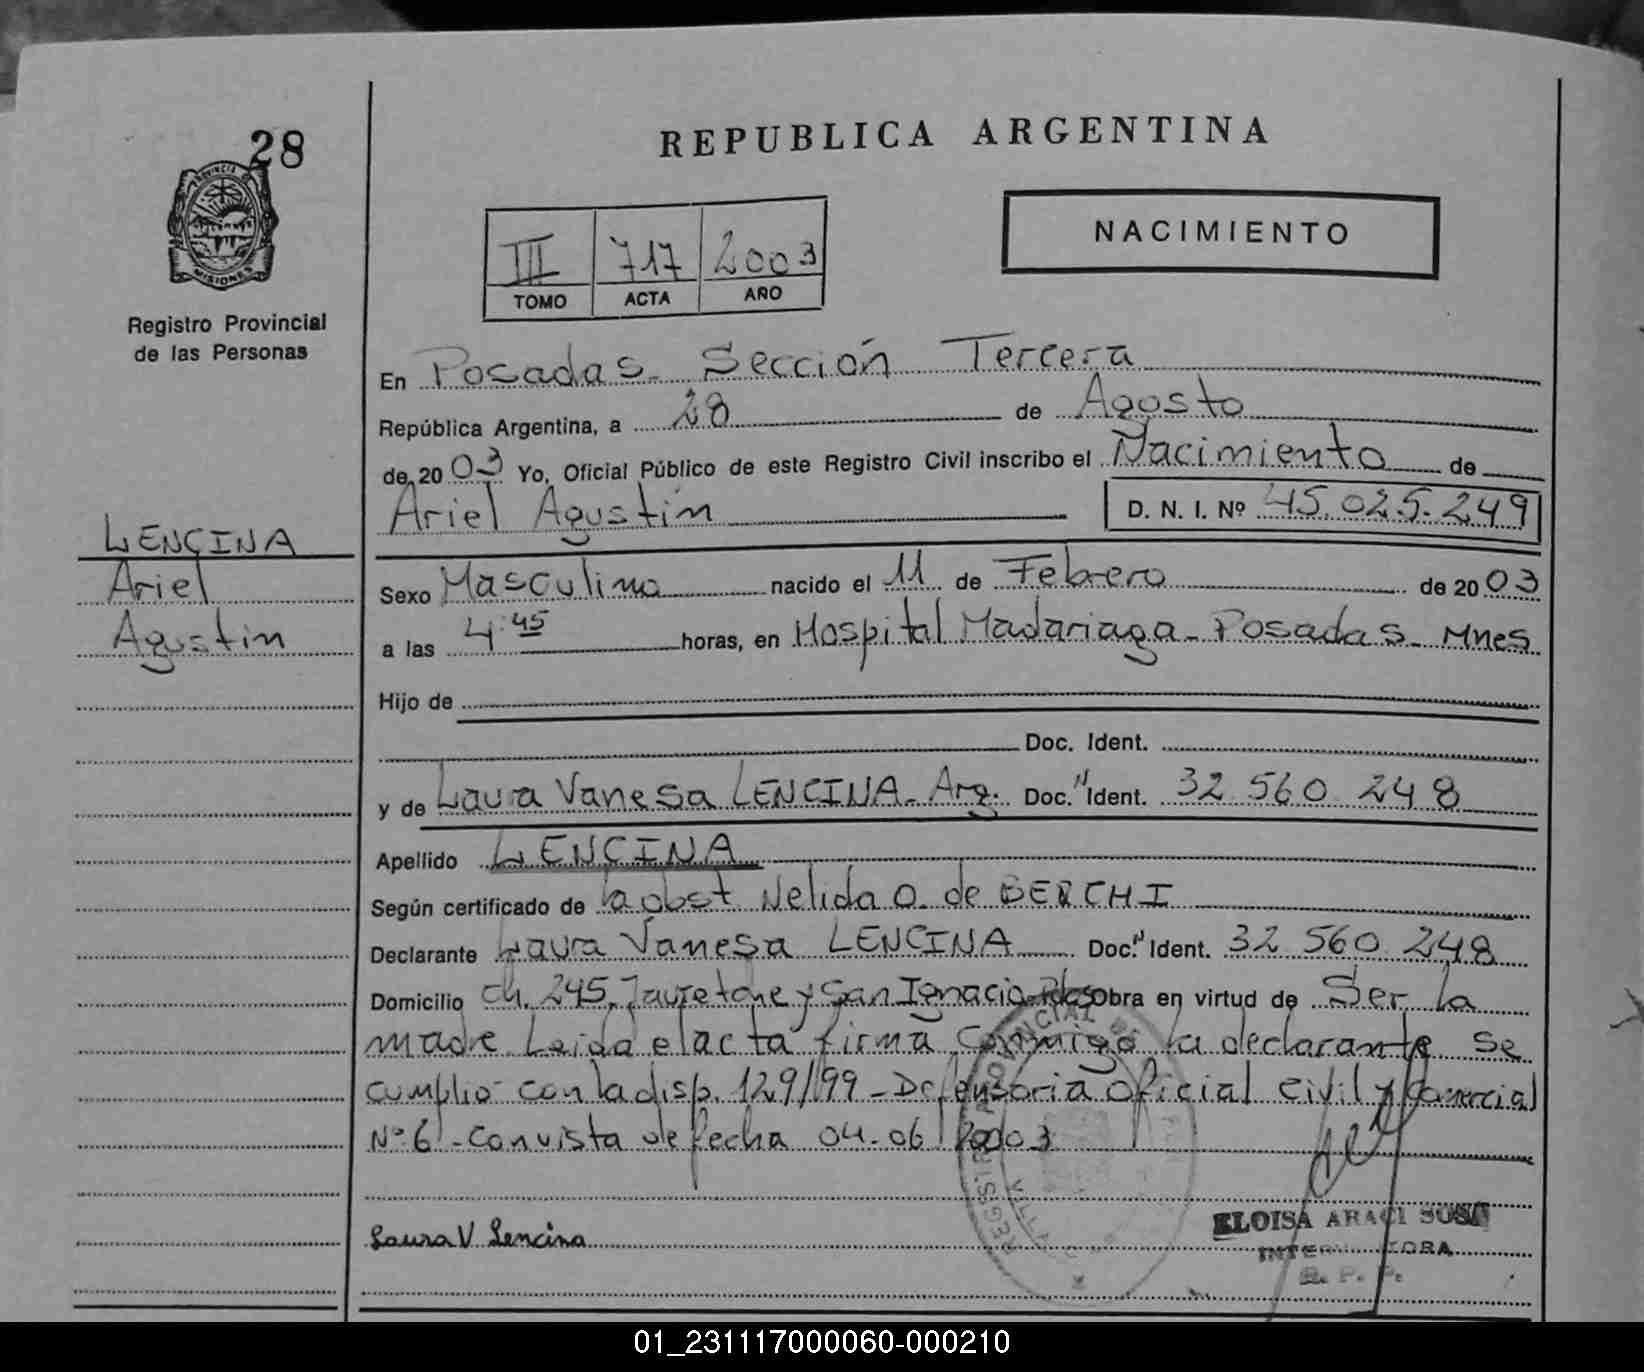 28
REPUBLICA ARGENTINA
PROVINCIA DE
MISIONES
Registro Provincial
de las Personas
NACIMIENTO
III 717 2003
TOMO ACTA AÑO
En Posadas. Sección Tercera
República Argentina, a 28 de Agosto
de 20 03 Yo, Oficial Público de este Registro Civil inscribo el Nacimiento de
Ariel Agustín D. N. I. Nº 45.025.249
LENCINA
Ariel
Agustín
Sexo Masculino nacido el 11 de Febrero de 20 03
a las 4:45 horas, en Hospital Madariaga - Posadas - Mnes
Hijo de
Doc. Ident.
y de Laura Vanesa LENCINA - Arg. Doc. Ident. 32 560 248
Apellido LENCINA
Según certificado de la obst Nelida O. de BERCHI
Declarante Laura Vanesa LENCINA Doc. Ident. 32 560 248
Domicilio Ch. 245, Jauretche y San Ignacio - Pdas obra en virtud de Ser la
madre Leida el acta firma conmigo la declarante se
cumplio con la disp. 129/99 - Defensoria oficial civil y Comercial
Nº 6 - Con vista de fecha 04-06 2003
Laura V Lencina
ELOISA ARACI SOSA
R. P. P.
01_231117000060-000210